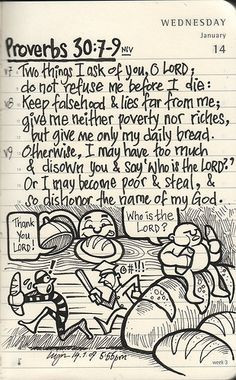 WEDNESDAY
January
14
Proverbs 30:7-9 NIV
v7 Two things I ask of you, O LORD;
do not refuse me before I die:
v8 Keep falsehood & lies far from me;
give me neither poverty nor riches,
but give me only my daily bread.
v9 Otherwise, I may have too much
& disown you & say 'Who is the LORD?'
Or I may become poor & steal, &
so dishonor the name of my God.
Thank
YOU
LORD!
Who is the
LORD?
@#!!!
14.1.09 5:55pm
week 3